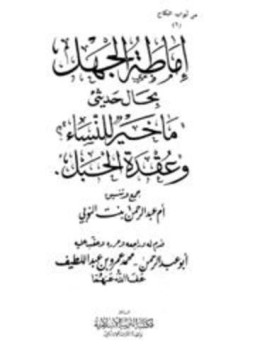 من أبواب النكاح
(٢)
إماطة الجهل
بحال حديثي
"ما خير للنساء؟"
وعقدة الحبل.
جمع وتنسيق
أم عبد الرحمن بنت النوبي
قدم له وراجعه وحرره وعقب عليه
أبو عبد الرحمن - محمد عمرو بن عبد اللطيف
عفا الله عنهما
الناشر
مكتبة التوعية الإسلامية